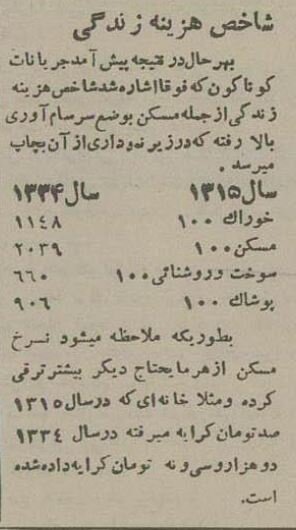 شاخص هزینه زندگی
بهرحال در نتیجه پیش آمد جریانات
کوناکون که فوقا اشاره شد شاخص هزینه
زندگی از جمله مسکن بوضع سرسام آوری
بالا رفته که در زیر نموداری از آن بچاپ
میرسد .
سال ۱۳۱۵ سال ۱۳۳۴
خوراك ۱۰۰ ۱۱۴۸
مسکن ۱۰۰ ۲۰۳۹
سوخت و روشنائی ۱۰۰ ۶۶۰
پوشاك ۱۰۰ ۹۰۶
بطوریکه ملاحظه میشود نسرخ
مسکن از هر مایحتاج دیگر بیشتر ترقی
کرده و مثلا خانه ای که در سال ۱۳۱۵
صد تومان کرایه میرفته در سال ۱۳۳۴
دو هزار و سی و نه تومان کرایه داده شده
است.